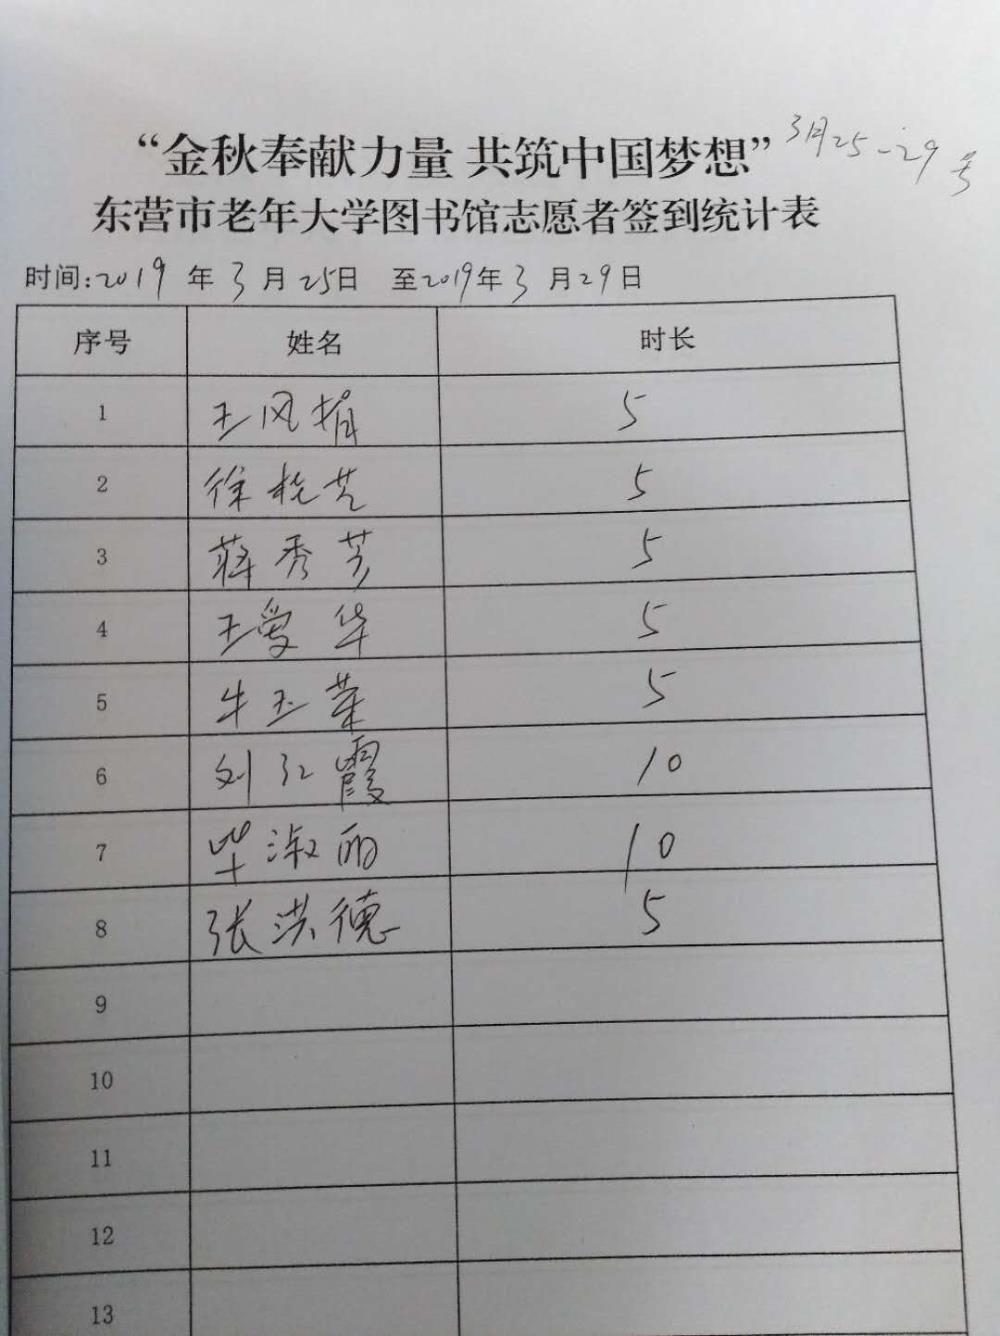 “金秋奉献力量 共筑中国梦想” 3月25-29号
东营市老年大学图书馆志愿者签到统计表
时间:2019年3月25日 至2019年3月29日
序号 姓名 时长
1 王风 5
2 徐 5
3 蒋秀芳 5
4 王爱华 5
5 牛玉荣 5
6 刘红霞 10
7 毕淑丽 10
8 张洪德 5
9
10
11
12
13